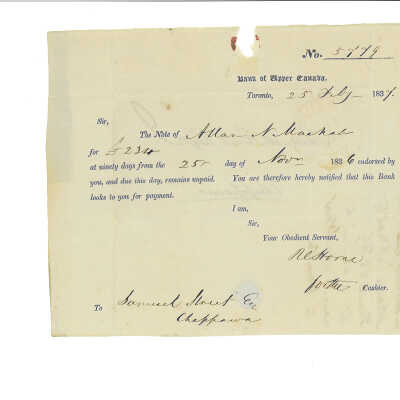 No. 5779
Bank of Upper Canada.
Toronto, 25 Feby 1837.
Sir,
The Note of Allan N Macnab
for £234
at ninety days from the 25 day of Novr 1836 endorsed by
you, and due this day, remains unpaid. You are therefore hereby notified that this Bank
looks to you for payment.
I am,
Sir,
Your Obedient Servant,
R C Horne
for the Cashier.
To Samuel Street Esq
Chippawa